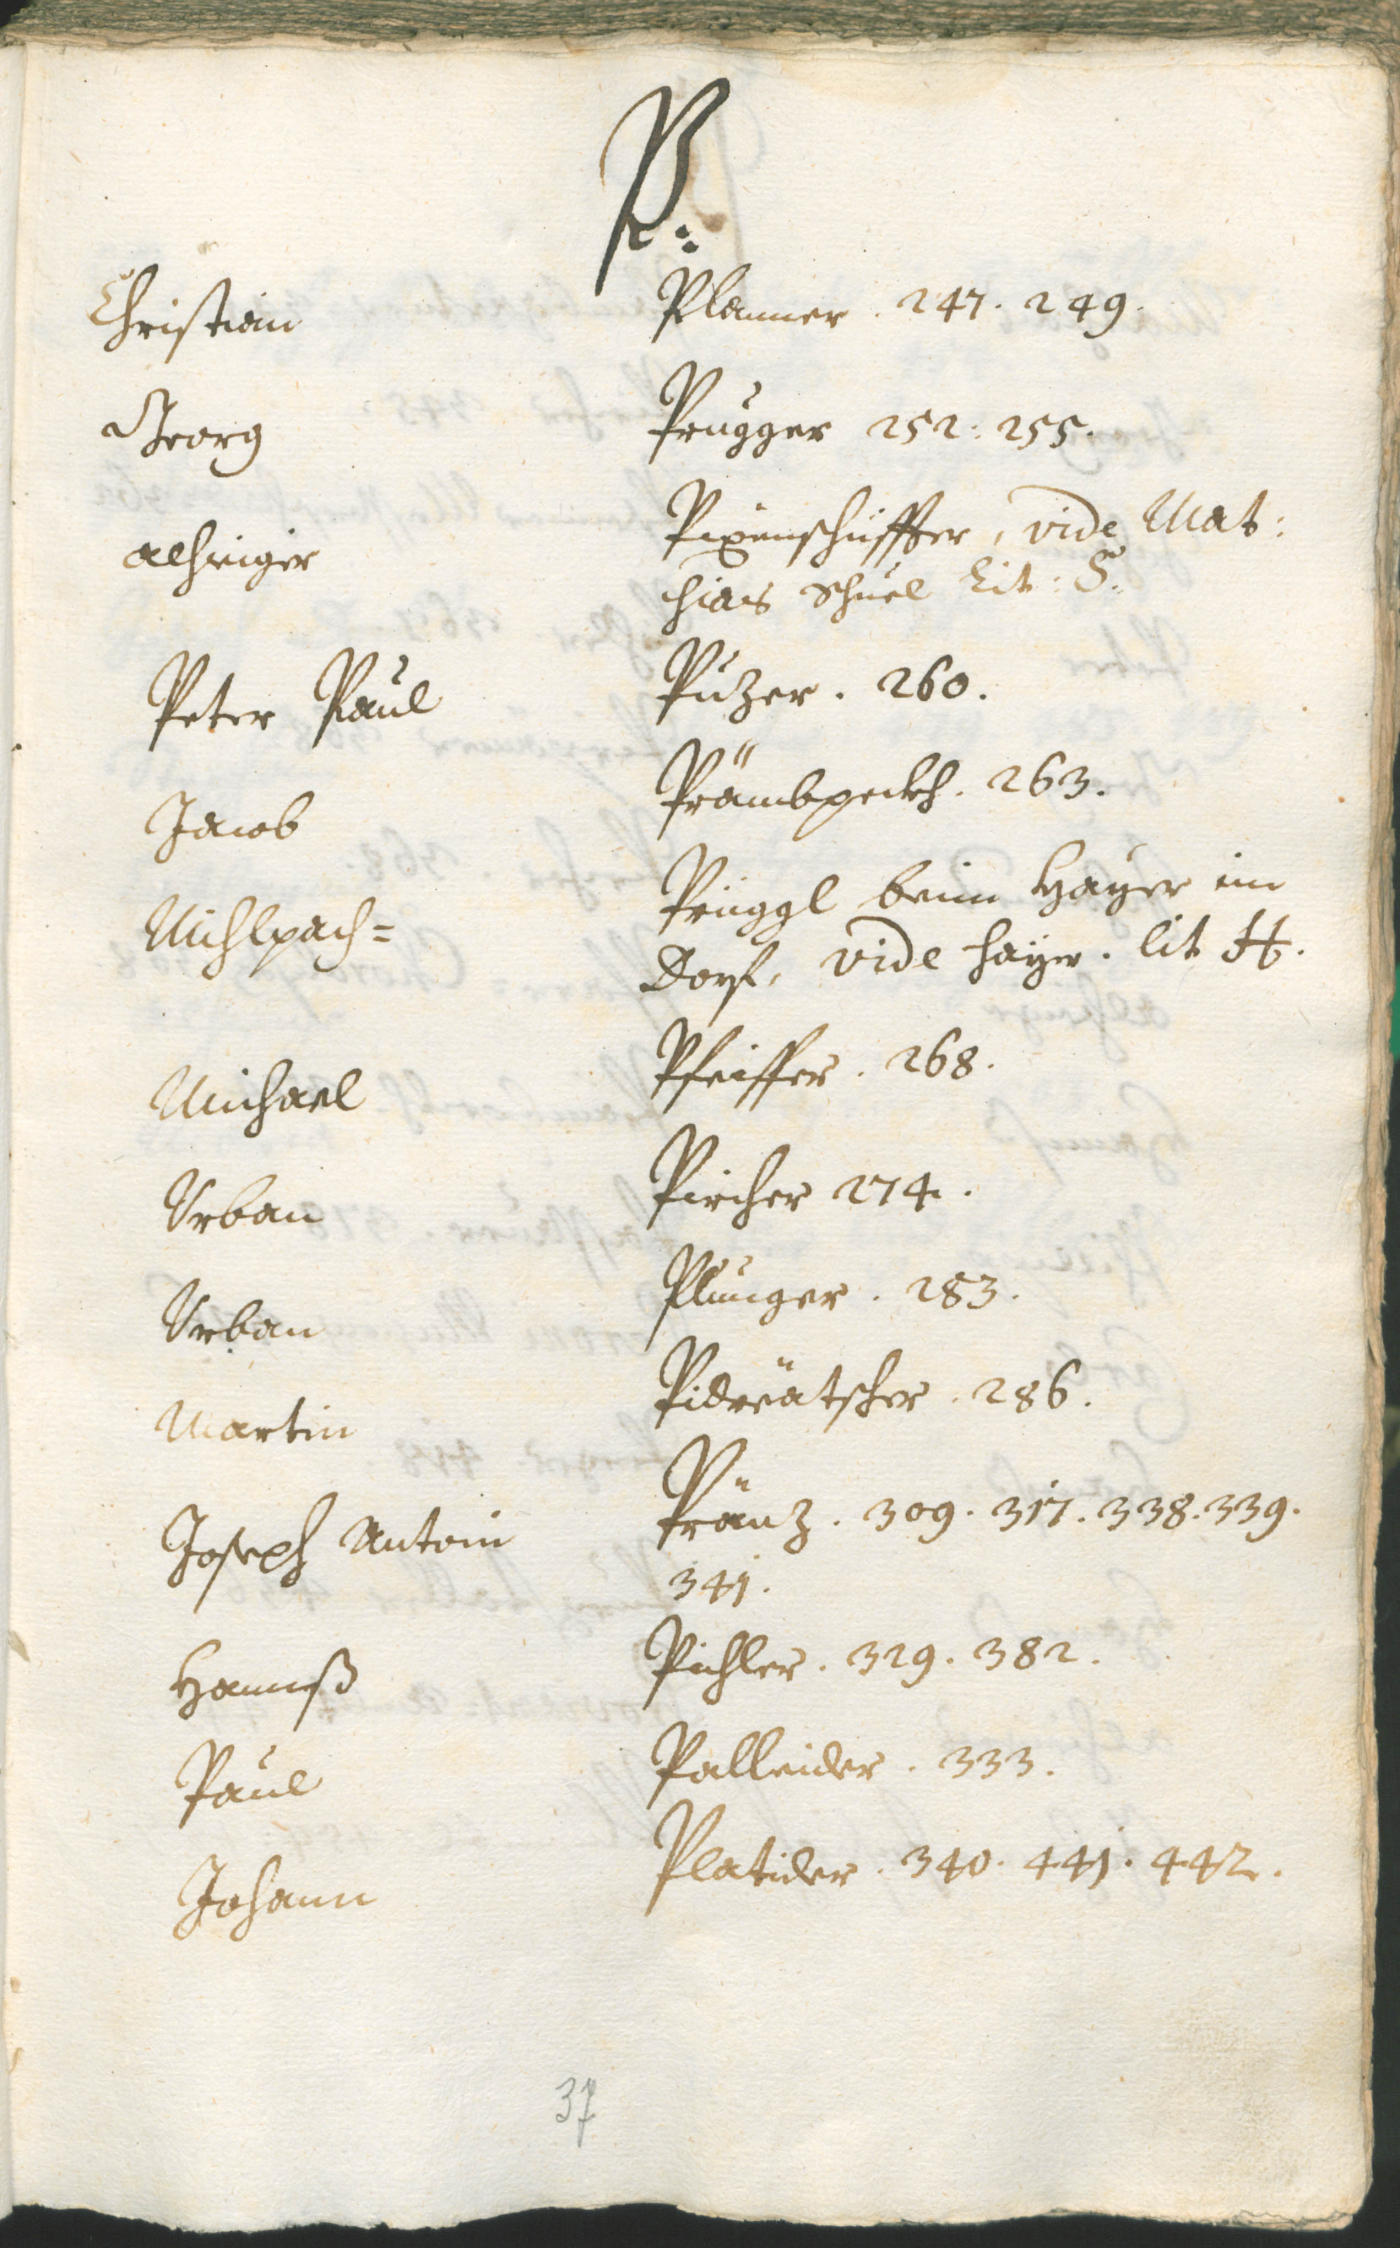 P:
Christian Planner . 247. 249.
Georg Prugger 252: 255.
alhiriger Pixenschüffter, vide Mat:
hias Schuel Lit: S.
Peter Paul Puzer . 260.
Jacob Prämbpeckh . 263.
Mihlpach= Prüggl beim Hayer im
Dorf, vide hayer . lit H.
Michael Pfeiffer . 268.
Vrban Pircher 274.
Vrban Plunger . 283.
Martin Pidräätscher . 286.
Joseph Antoni Pränz . 309. 317. 338. 339.
341.
Hannß Pichler . 329. 382.
Paul Palleider . 333.
Johann Platider . 340. 441. 442.
37